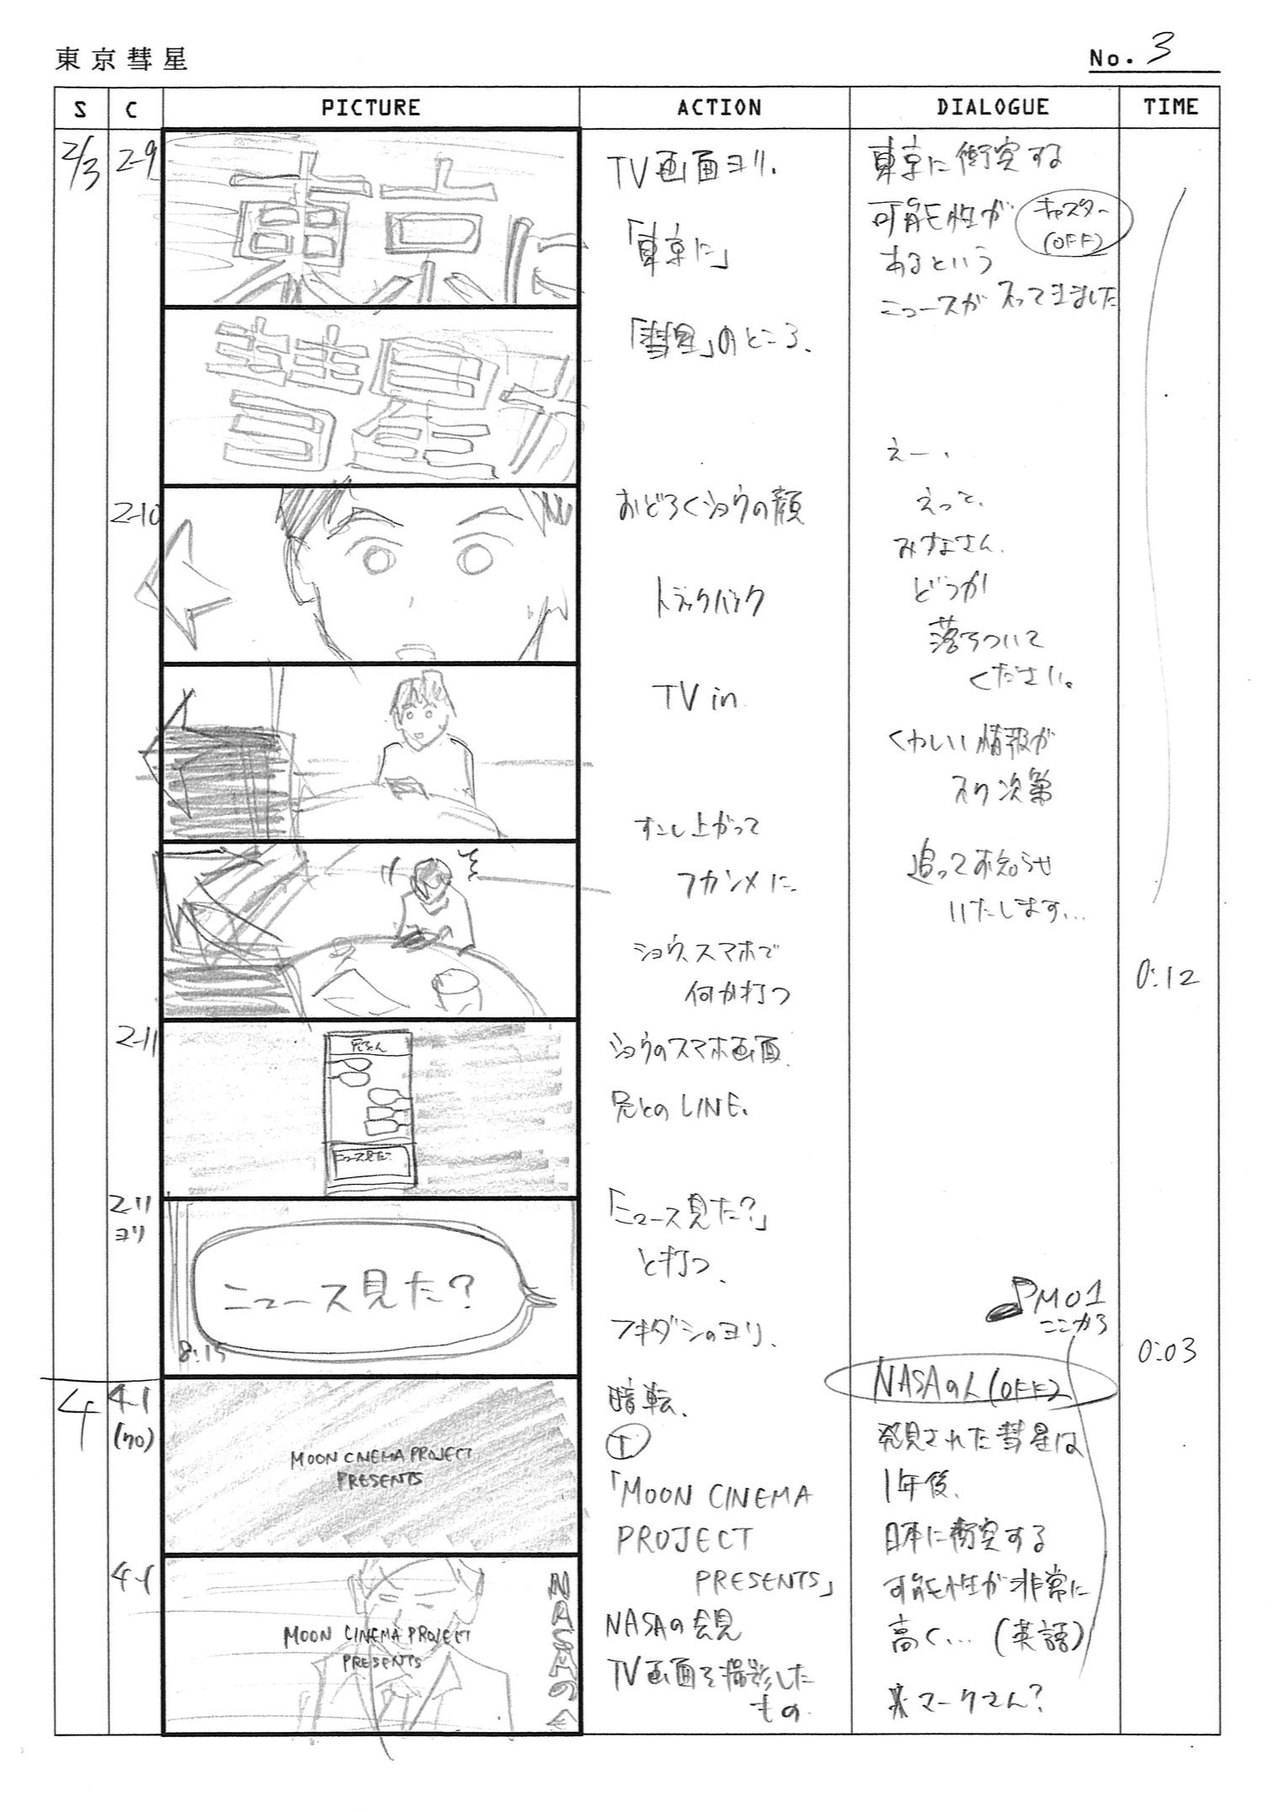 東京彗星
No. 3
S C PICTURE ACTION DIALOGUE TIME
2/3
2-9
東京に
TV画面ヨリ.
「東京に」
東京に衝突する
可能性が
キャスター
(OFF)
あるという
ニュースが入ってきました
彗星
「彗星」のところ.
えー、
2-10
おどろくショウの顔
トラックバック
えっと、
みなさん、
どうか
落ちついて
ください。
TV in
くわしい情報が
入り次第
すこし上がって
フカンメに.
ショウ、スマホで
何か打つ
追ってお知らせ
いたします...
0:12
2-11
兄ちゃん
ニュース見た?
ショウのスマホ画面.
兄とのLINE.
2-11
ヨリ
ニュース見た?
8:15
「ニュース見た?」
と打つ、
フキダシのヨリ.
M01
ここから
0:03
4
4-1
(70)
MOON CINEMA PROJECT
PRESENTS
暗転、
T
「MOON CINEMA
PROJECT
PRESENTS」
NASAの人(OFF)
発見された彗星は
1年後、
日本に衝突する
可能性が非常に
高く...(英語)
4-1
MOON CINEMA PROJECT
PRESENTS
NASAの
NASAの会見
TV画面を撮影した
もの
マークさん?